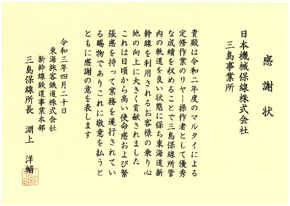 感謝状
日本機械保線株式会社
三島事業所
貴殿は令和二年度のマルタイによる
定修作業のリヤー操作者として優秀
な成績を収めることで三島保線所管
内の軌道を良い状態に保ち東海道新
幹線を利用されるお客様の乗り心
地の向上に大きく貢献されました
これは日頃から高い使命感および緊
張感を持って業務を遂行されてい
る賜物でありこれに敬意を払うと
ともに感謝の意を表します
令和三年四月二十日
東海旅客鉄道株式会社
新幹線鉄道事業本部
三島保線所長 淵上 洋輔